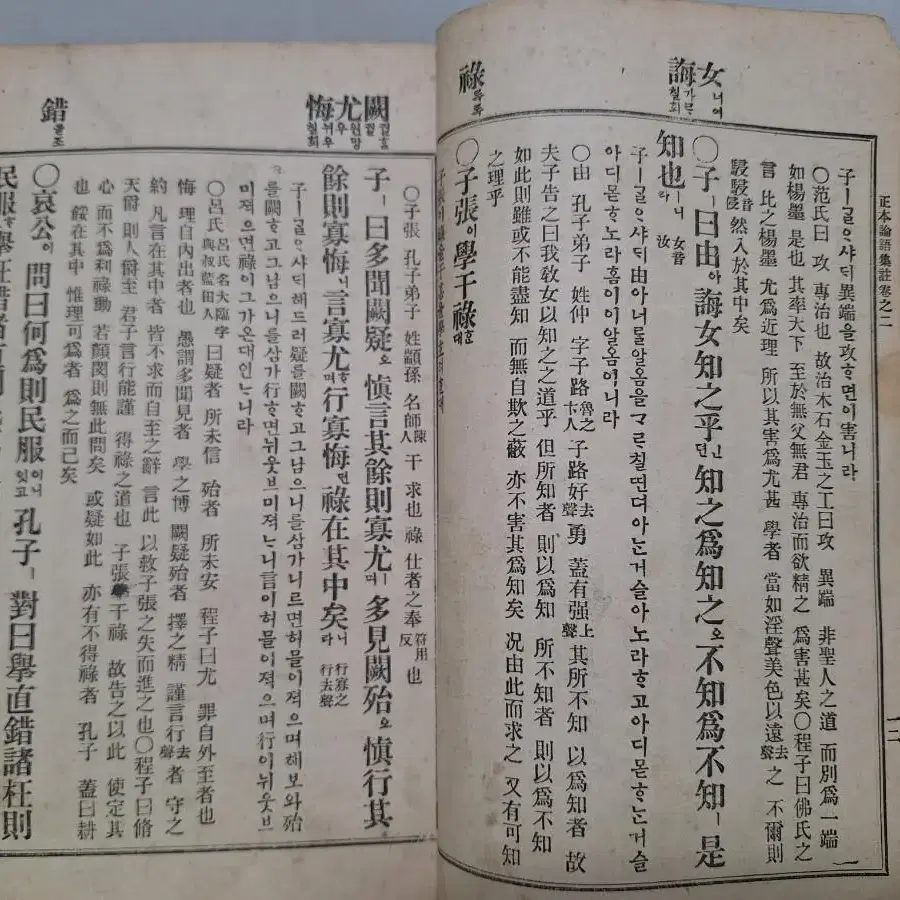 正本論語集註卷之二
女 너여
誨 가르칠회
祿 록록
子ㅣᄀᆞᆯᄋᆞ샤ᄃᆡ異端을攻ᄒᆞ면이害니라
○范氏曰 攻 專治也 故治木石金玉之工曰攻 異端 非聖人之道 而別爲一端
如楊墨 是也 其率天下 至於無父無君 專治而欲精之 爲害甚矣○程子曰佛氏之
言 比之楊墨 尤爲近理 所以其害爲尤甚 學者 當如淫聲美色以遠去聲之 不爾則
駸駸音侵然入於其中矣
○子ㅣ曰由아誨女知之乎ᅟᅵᆫ뎌知之爲知之오不知爲不知ㅣ是
知也ㅣ니라 女音汝
子ㅣᄀᆞᆯᄋᆞ샤ᄃᆡ由아너를알옴을ᄀᆞᄅᆞ칠띤뎌아ᄂᆞᆫ거슬아노라ᄒᆞ고아디몯ᄒᆞᄂᆞᆫ거슬
아디몯ᄒᆞ노라홈이이알옴이니라
○由 孔子弟子 姓仲 字子路魯之卞人 子路好去聲勇 蓋有强上聲其所不知 以爲知者 故
夫子告之曰我敎女以知之之道乎 但所知者 則以爲知 所不知者 則以爲不知
如此則雖或不能盡知 而無自欺之蔽 亦不害其爲知矣 况由此而求之 又有可知
之理乎
○子張이學干祿ᄒᆞᆫ대
闕 궐ᄒᆞᆯ궐
尤 원망우
悔 뉘우칠회
錯 둘조
○子張 孔子弟子 姓顓孫 名師陳人 干 求也 祿 仕者之奉符用反也
子ㅣ曰多聞闕疑오愼言其餘則寡尤ㅣ며多見闕殆오愼行其
餘則寡悔니言寡尤ᄒᆞ며行寡悔면祿在其中矣니라 行寡之行去聲
子ㅣᄀᆞᆯᄋᆞ샤ᄃᆡ해드러疑를闕ᄒᆞ고그남으니를삼가니르면허믈이져그며해보와殆
를闕ᄒᆞ고그남으니를삼가行ᄒᆞ면뉘웃브미져ᄂᆞ니言이허믈이져그며行이뉘웃브
미져그면祿이그가온대인ᄂᆞ니라
○呂氏呂氏名大臨字與叔藍田人曰疑者 所未信 殆者 所未安 程子曰尤 罪自外至者也
悔 理自內出者也 愚謂多聞見者 學之博 闕疑殆者 擇之精 謹言行去聲者 守之
約 凡言在其中者 皆不求而自至之辭 言此 以救子張之失而進之也○程子曰脩
天爵 則人爵至 君子言行能謹 得祿之道也 子張學干祿 故告之以此 使定其
心 而不爲利祿動 若顔閔則無此問矣 或疑如此 亦有不得祿者 孔子 蓋曰耕
也 餒在其中 惟理可爲者 爲之而已矣
○哀公이問曰何爲則民服이니잇고孔子ㅣ對曰擧直錯諸枉則
民服ᄒᆞ고擧枉錯諸直則